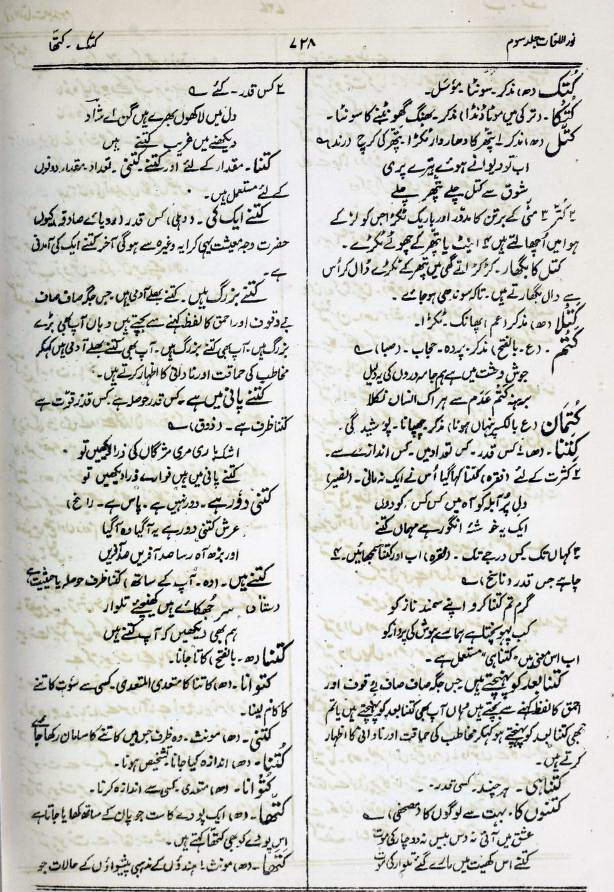 نور اللغات جلد سوم
۷۲۸
کتک ۔ کتھا
کُتک (ھ) مذکر۔ سونٹا۔ مؤسل۔
کُتکا ۔ (ترکی میں موٹا ڈنڈا) مذکر۔ بھنگ گھوٹنے کا سونٹا۔
کتّل (ھ) مذکر ۱ پتھر کا دھاردار ٹکڑا۔ پتھر کی کرچ (رند) ؎
اب تو دیوانے ہوئے تیرے پری
شوق سے کتل چلے پتھر چلے
۲ کنکر ۳ مٹی کے برتن کا مدوّر اور باریک ٹکڑا جس کو لڑکے
ہوا میں اُچھالتے ہیں ۴ اینٹ یا پتھر کے چھوٹے ٹکڑے۔
کتل کا بگھار۔ کڑکڑاتے گھی میں پتھر کے ٹکڑے ڈال کر اُس
سے دال بگھارتے ہیں۔ تاکہ سوندھی ہو جائے۔
کُتلا (ھ) مذکر (عم) پھانک۔ ٹکڑا۔
کتم ۔ (ع۔ بالفتح) مذکر۔ پردہ۔ حجاب۔ (صبا) ؎
جوشِ وحشت میں ہے ہم جامہ دروں کی یہ دلیل
برہنہ کتم عدم سے ہر اک انساں نکلا
کِتمان (ع بالکسر۔ پنہاں ہونا) مذکر۔ چھپانا۔ پوشیدگی۔
کتنا ۔ (ھ) ۱ کس قدر۔ کس تعداد میں۔ کس اندازے سے۔
۲ کثرت کے لئے (فقرہ) کتنا کہا گیا اُس نے ایک نہ مانی۔ (نصیر)
دلِ پُر آبلہ کو آہ میں کس کس کو دوں
ایک یہ خوشۂ انگور ہے مہماں کتنے
۳ کہاں تک کس درجے تک۔ (فقرہ) اب اور کتنا سمجھائیں۔ ۴
چاہے جس قدر (ناسخ) ؎
گرم تم کتنا کرو اپنے سمند ناز کو
کب پہونچتا ہے ہمارے ہوش کی پرواز کو
اب اس معنی میں "کتنا ہی" مستعمل ہے۔
کتنا بعد کو پہونچتے ہیں۔ جس جگہ صاف صاف بے وقوف اور
احمق کا لفظ کہنے سے بچتے ہیں وہاں آپ بھی کتنا بعد کو پہونچتے ہیں یا تم
بھی کتنا بعد کو پہنچتے ہو کہہ کر مخاطب کی حماقت اور نادانی کا اظہار
کرتے ہیں۔
کتنا ہی۔ ہر چند۔ کسی قدر۔
کتنوں کا۔ بہت سے لوگوں کا (مصحفی) ؎
عشق میں آئی نہ دس بیس نہ دو چار کی موت
کتنے اس کھیت میں مارے گئے تلوار کی موت
۲ کس قدر۔ کئے ؎
دل میں لاکھوں بھرے ہیں گن اے شاد
دیکھنے میں غریب کتنے ہیں
کتنا۔ مقدار کے لئے اور کتنے کتنی۔ تعداد۔ مقدار دونوں
کے لئے مستعمل ہیں۔
کتنے ایک کی۔ (دہلی) کس قدر (رویائے صادقہ) کیوں
حضرت وجہ معیشت یہی کرایہ وغیرہ سے ہوگی آخر کتنے ایک کی آمدنی
ہے۔
کتنے بزرگ ہیں۔ کتنے بھلے آدمی ہیں۔ جس جگہ صاف صاف
بے وقوف اور احمق کا لفظ کہنے سے بچتے ہیں وہاں آپ بھی بڑے
بزرگ ہیں۔ آپ بھی کتنے بزرگ ہیں۔ آپ بھی کتنے بھلے آدمی ہیں کہہ کر
مخاطب کی حماقت اور نادانی کا اظہار کرتے ہیں۔
کتنے پانی میں ہے۔ کس قدر حوصلہ ہے کس قدر قوت ہے
کتنا ظرف ہے۔ (ذوق) ؎
اشکباری مری مژگاں کی ذرا دیکھیں تو
کتنے پانی میں ہیں فوارے ذرا دیکھیں تو
کتنی دور ہے۔ دور نہیں ہے۔ پاس ہے۔ (راسخ)
عرش کتنی دور ہے یہ آگیا وہ آگیا
اور بڑھ آہ رسا صد آفریں صد آفریں
کتنے ہیں۔ (دہ۔ آپ کے ساتھ) کتنا ظرف حوصلہ یا حیثیت ہے
سر جھکائے ہیں کھینچئے تلوار
ہم بھی دیکھیں کہ آپ کتنے ہیں
کتنا (ھ۔ بالفتح) کاتا جانا۔
کتوانا۔ (ھ) کاتنا کا متعدی المتعدی۔ کسی سے سوت کاتنے
کا کام لینا۔
کتنی۔ (ھ) مونث۔ وہ ظرف جس میں کاتنے کا سامان رکھا جائے
کُتنا۔ (ھ) اندازہ کیا جانا۔ تشخیص ہونا۔
کُتوانا۔ (ھ) متعدی۔ کسی سے اندازہ کرنا۔
کتھا۔ (ھ) ایک پودے کا ست جو پان کے ساتھ کھایا جاتا ہے
اس پودے کو بھی کتھا کہتے ہیں۔
کتھا۔ (ھ) مونث ۱ ہندوؤں کے مذہبی پیشواؤں کے حالات جو